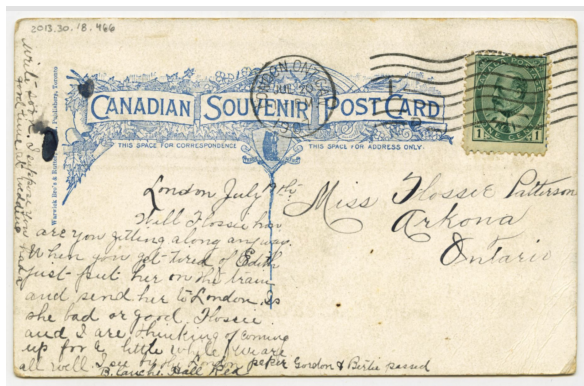 2013.30.18.466
CANADIAN SOUVENIR POST CARD
THIS SPACE FOR CORRESPONDENCE
THIS SPACE FOR ADDRESS ONLY.
LONDON
1 1
Warwick Bro's & Rutter, Publishers, Toronto
London July
Well Flossie how
are you gitting along anyway.
When you get tired of Edith
just put her on the train
and send her to London. Is
she bad or good. Flossie
and I are thinking of coming
up for a little while. We are
all well. I see by the London paper Gordon & Birtie passed
Blanche Hall
Write soon I suppose you had a
good time at wedding
Miss Flossie Patterson
Arkona
Ontario